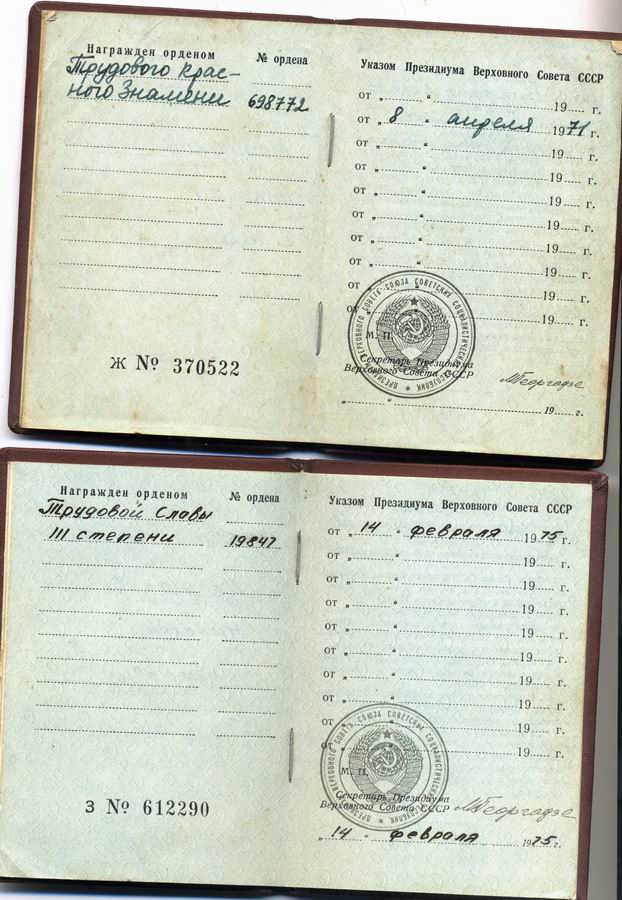 Награжден орденом № ордена
Трудового Крас-
ного Знамени 698772
Ж № 370522
Указом Президиума Верховного Совета СССР
от „ “ 19 г.
от „ 8 “ апреля 1971 г.
от „ “ 19 г.
от „ “ 19 г.
от „ “ 19 г.
от „ “ 19 г.
от „ “ 19 г.
от „ “ 19 г.
от „ “ 19 г.
от „ “ 19 г.
ПРЕЗИДИУМ ВЕРХОВНОГО СОВЕТА СОЮЗА СОВЕТСКИХ СОЦИАЛИСТИЧЕСКИХ РЕСПУБЛИК
М. П.
Секретарь Президиума
Верховного Совета СССР
МГеоргадзе
„ “ 19 г.
Награжден орденом № ордена
Трудовой Славы
III степени 19847
З № 612290
Указом Президиума Верховного Совета СССР
от „ 14 “ февраля 1975 г.
от „ “ 19 г.
от „ “ 19 г.
от „ “ 19 г.
от „ “ 19 г.
от „ “ 19 г.
от „ “ 19 г.
от „ “ 19 г.
от „ “ 19 г.
от „ “ 19 г.
ПРЕЗИДИУМ ВЕРХОВНОГО СОВЕТА СОЮЗА СОВЕТСКИХ СОЦИАЛИСТИЧЕСКИХ РЕСПУБЛИК
М. П.
Секретарь Президиума
Верховного Совета СССР МГеоргадзе
„ 14 “ февраля 1975 г.